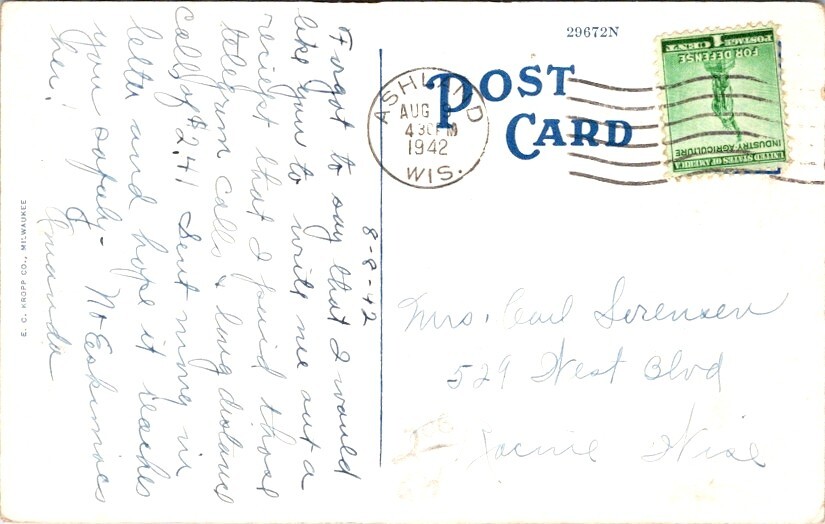 8-8-42
Forgot to say that I would
like you to write me out a
reciept that I paid those
telegram calls & long distance
calls of $2.41 Sent money in
letter and hope it reaches
you safely - No Eskimoes
her! Amanda
E. C. KROPP CO., MILWAUKEE
29672N
POST
CARD
ASHLAND
AUG 9
430 PM
1942
WIS.
UNITED STATES OF AMERICA
INDUSTRY AGRICULTURE
FOR DEFENSE
1 CENT
POSTAGE
Mrs. Carl Sorensen
529 West Blvd
Racine Wisc